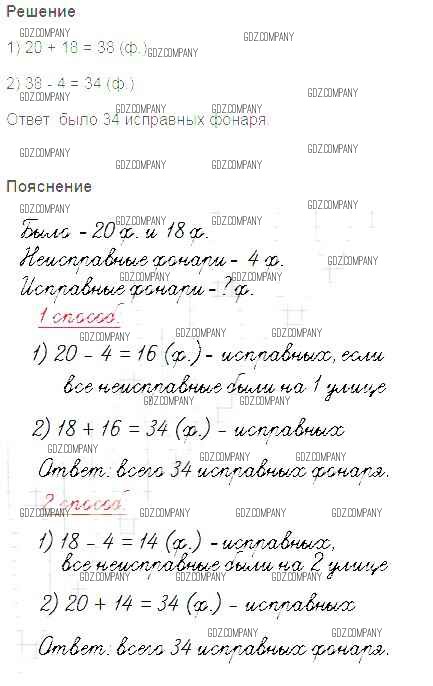 Решение
1) 20 + 18 = 38 (ф.)
2) 38 - 4 = 34 (ф.)
Ответ было 34 исправных фонаря.
Пояснение
Было - 20 ф. и 18 ф.
Неисправные фонари - 4 ф.
Исправные фонари - ? ф.
1 способ.
1) 20 - 4 = 16 (ф.) - исправных, если
все неисправные были на 1 улице
2) 18 + 16 = 34 (ф.) - исправных
Ответ: всего 34 исправных фонаря.
2 способ.
1) 18 - 4 = 14 (ф.) - исправных,
все неисправные были на 2 улице
2) 20 + 14 = 34 (ф.) - исправных
Ответ: всего 34 исправных фонаря.
GDZ.COMPANY